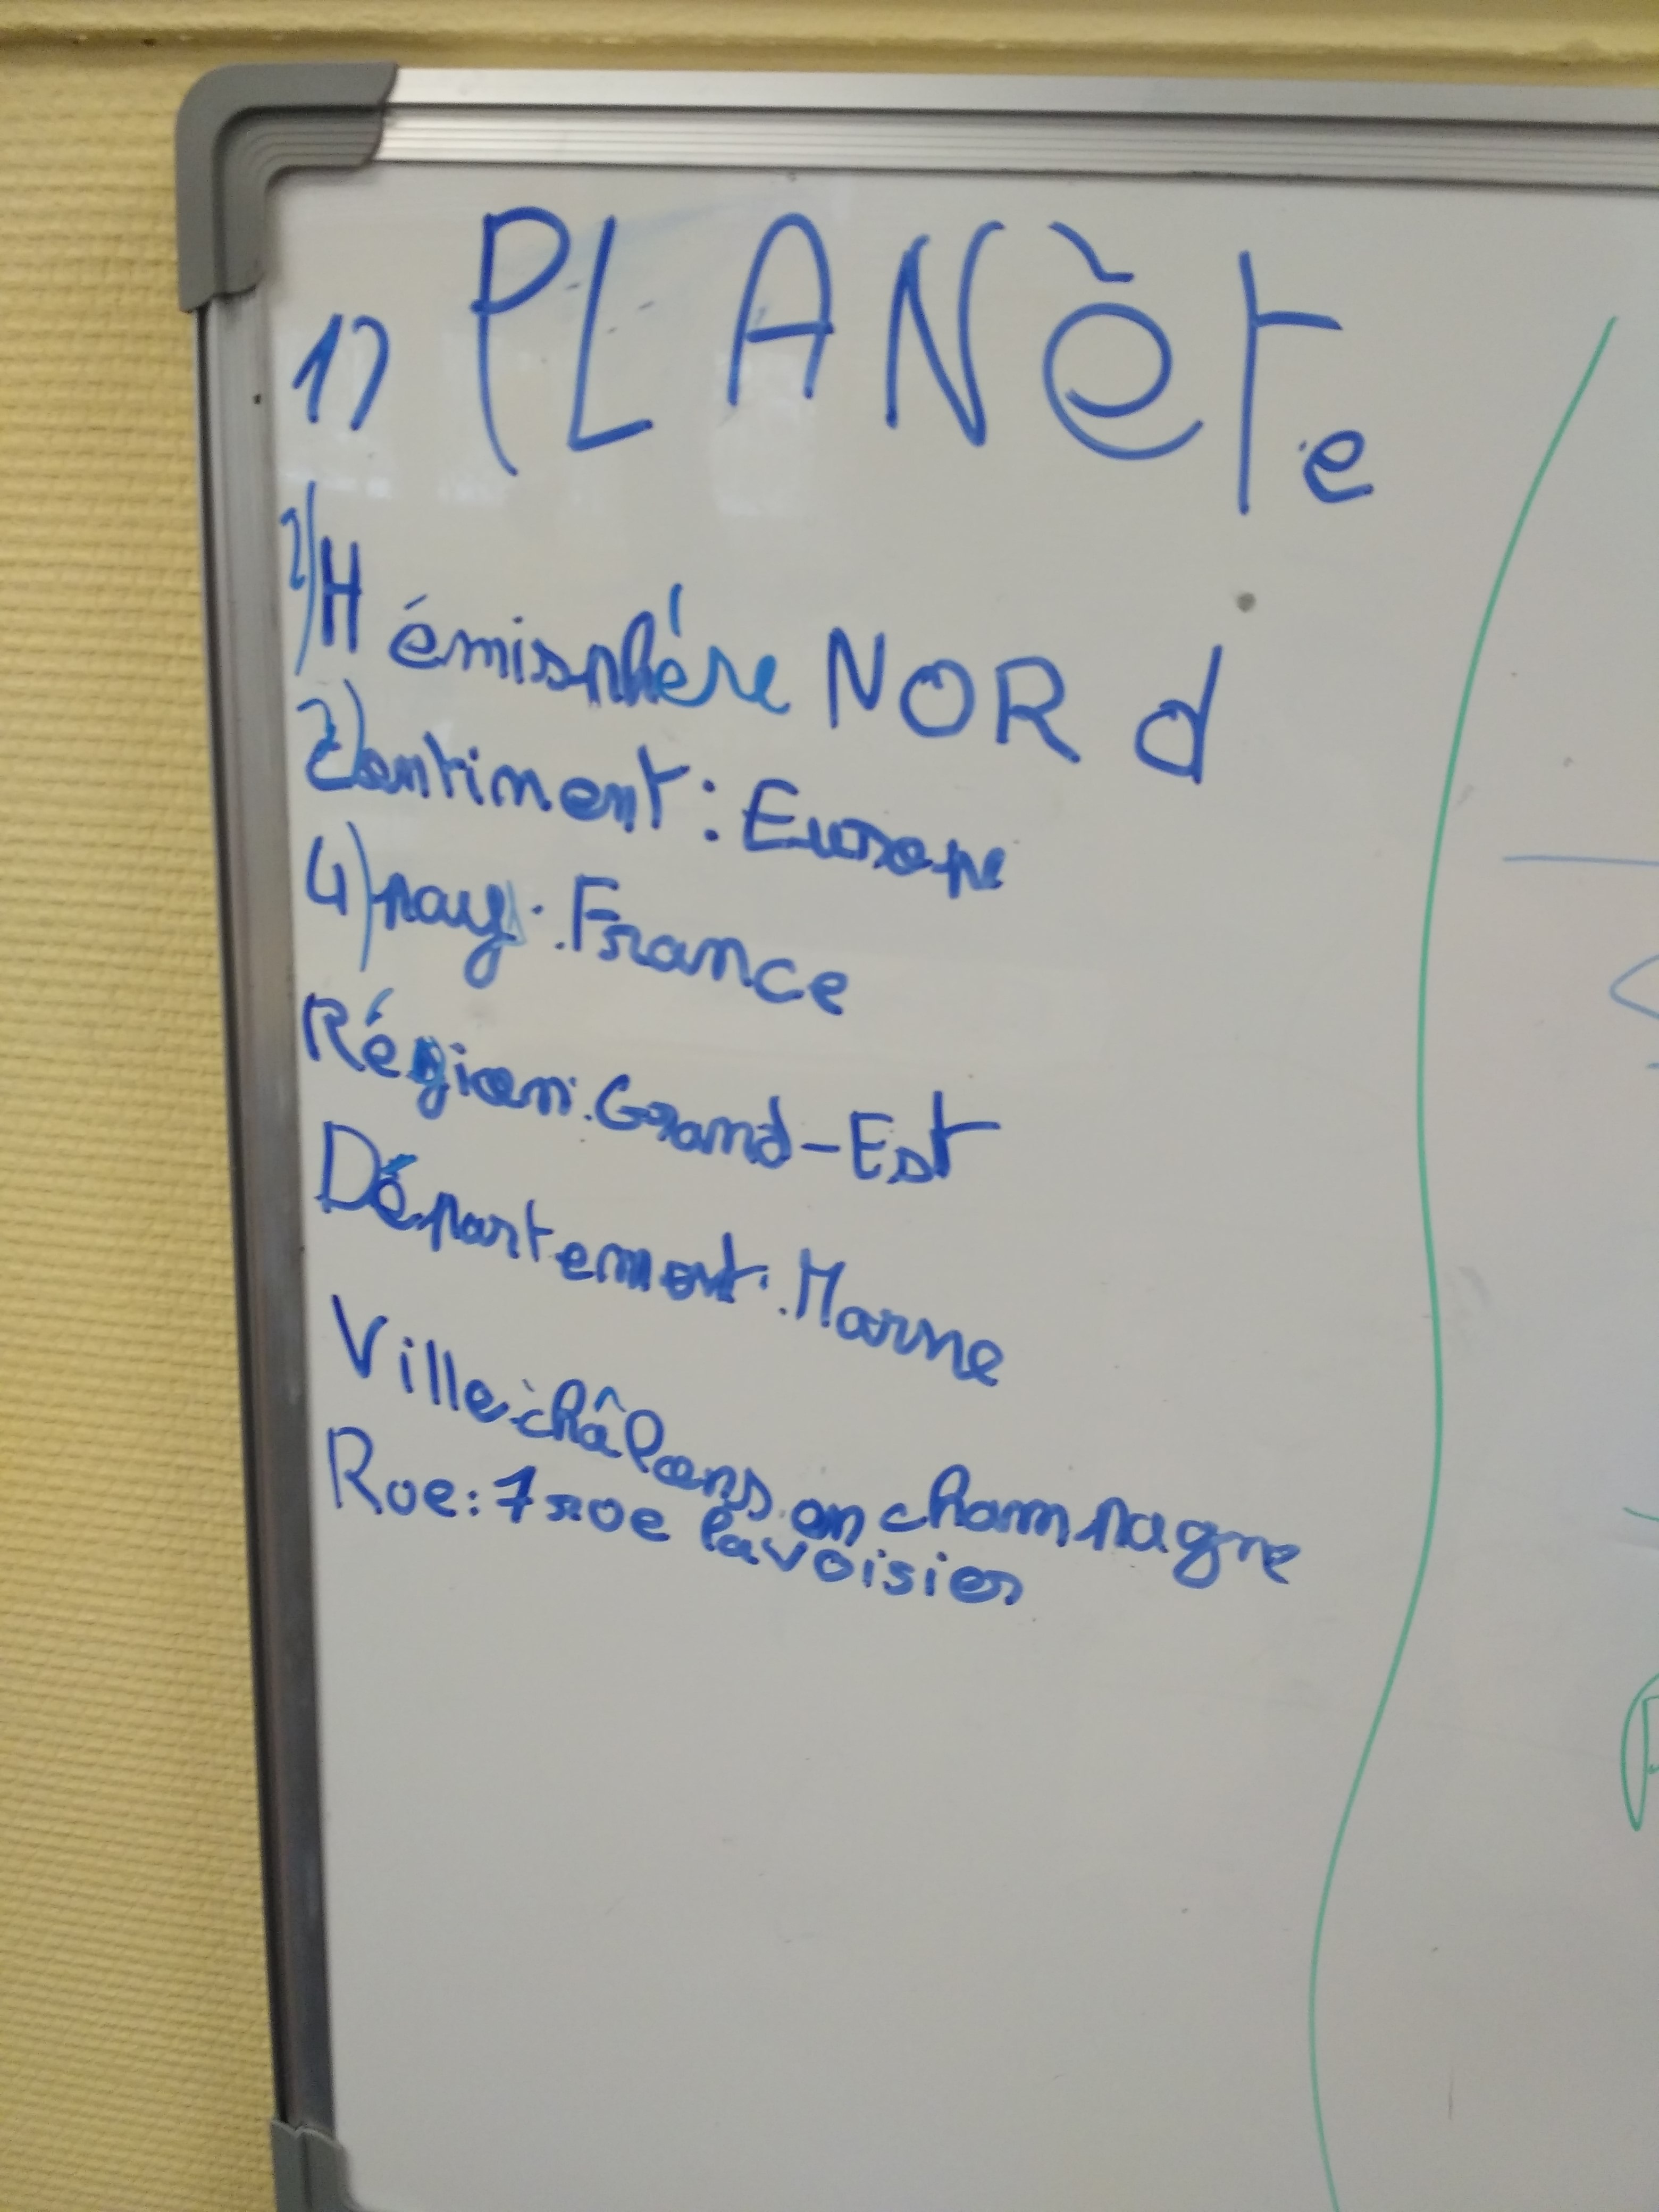 1) PLANèTe
2) Hémisphère NORd
3) Continent : Europe
4) pays : France
Région : Grand-Est
Département : Marne
Ville : châlons en champagne
Rue : 7 rue lavoisier